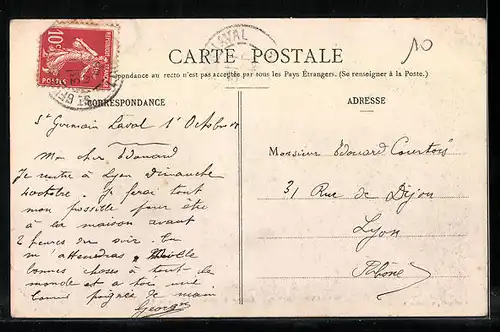 LAVAL
10
CARTE POSTALE
10
POSTES
La Correspondance au recto n'est pas acceptée par tous les Pays Étrangers. (Se renseigner à la Poste.)
CORRESPONDANCE
ADRESSE
St Germain Laval 1r Octobre
Mon cher Edouard
Je rentre à Lyon Dimanche
4 octobre. Je ferai tout
mon possible pour être
à la maison avant
2 heures du soir. Tu
m'attendras. Mille
bonnes choses à tout le
monde et à toi une
bonne poignée de main
Georges
Monsieur Edouard Courtois
31 Rue de Dijon
Lyon
Rhône